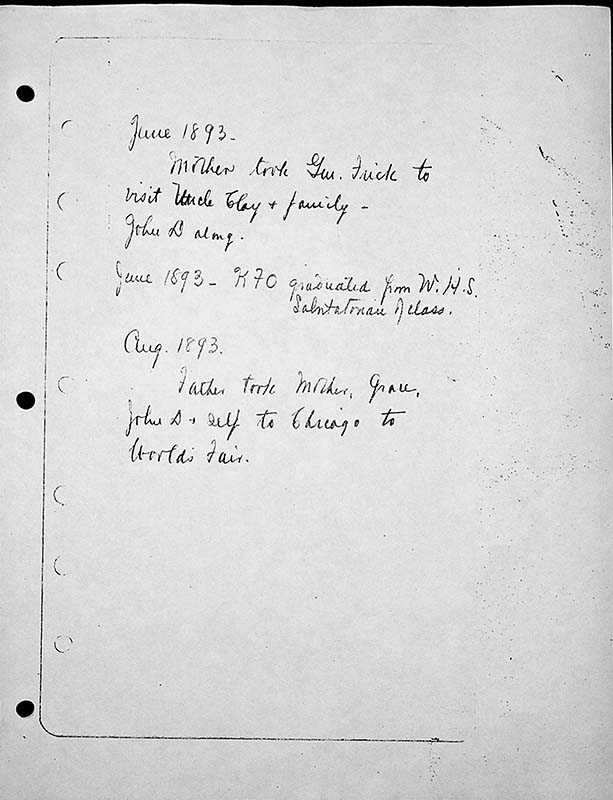 June 1893 -
Mother took Gen. Frick to
visit Uncle Clay + family -
John D along.
June 1893 - K7O graduated from W.H.S.
Salutatorian of class.
Aug. 1893.
Father took Mother, Grace,
John D + self to Chicago to
World's Fair.